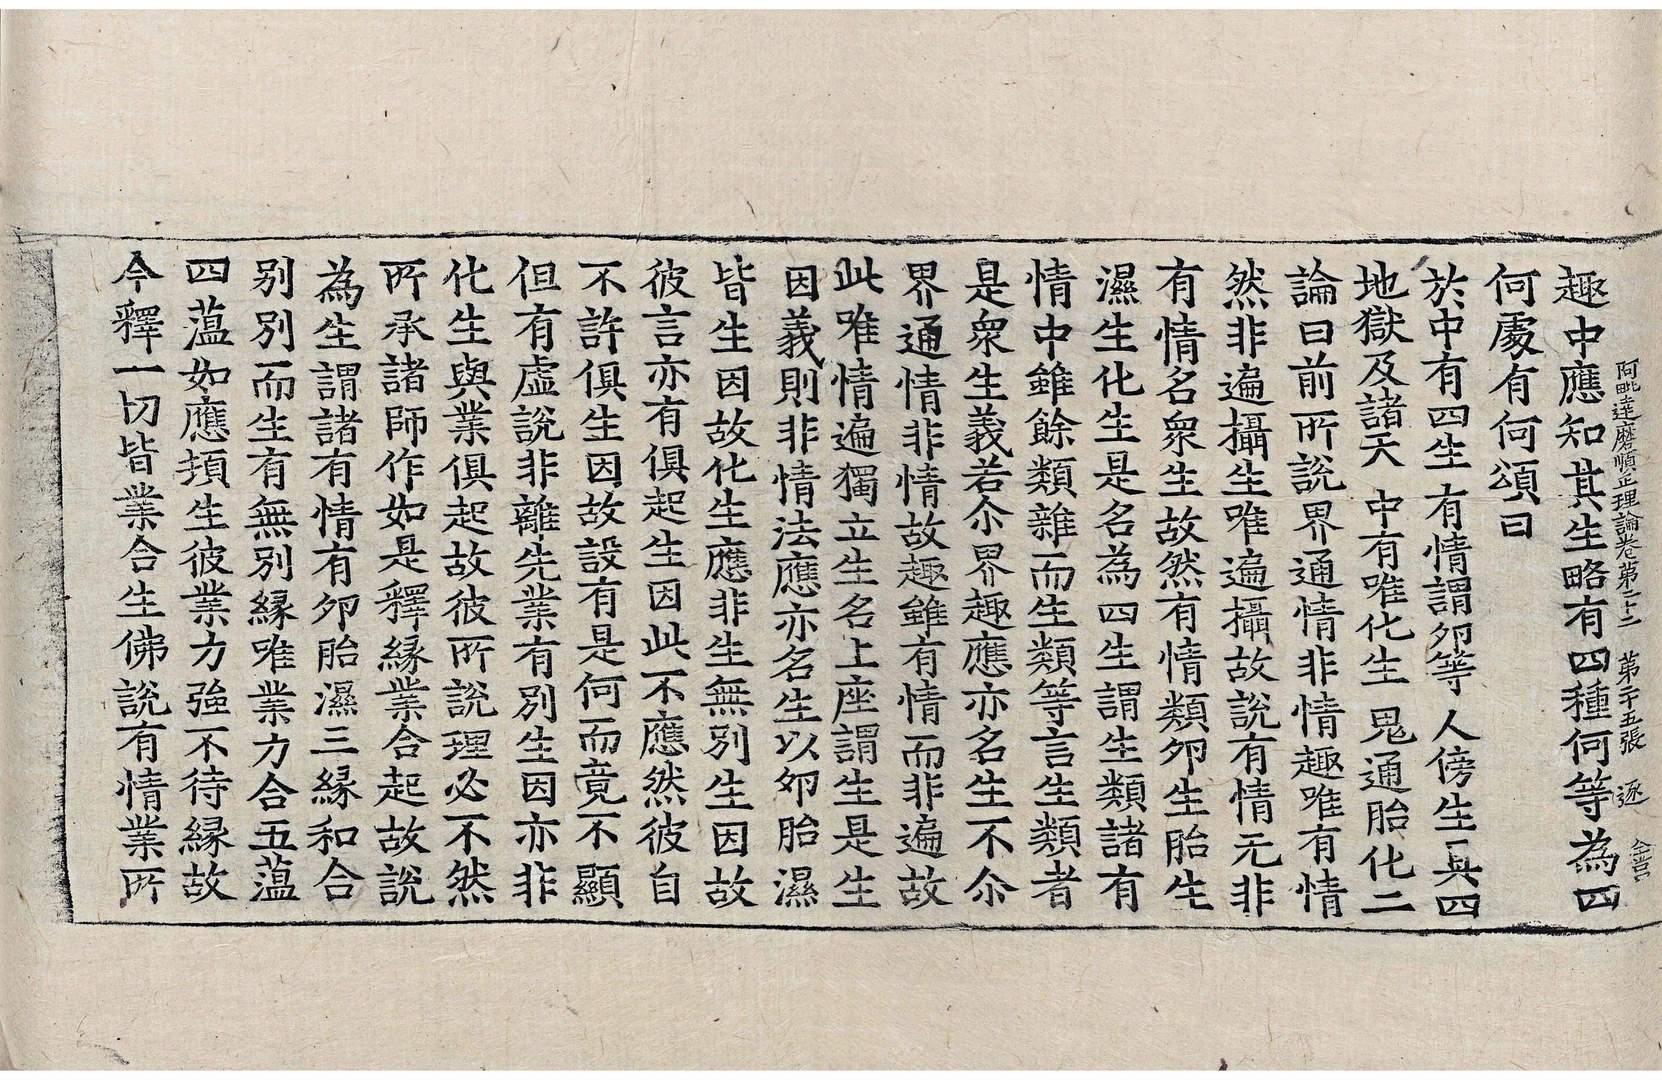 阿毗達磨順正理論卷第二十二 第十五張 逐
趣中應知其生略有四種何等為四
何處有何頌曰
於中有四生 有情謂卵等 人傍生具四
地獄及諸天 中有唯化生 鬼通胎化二
論曰前所說界通情非情趣唯有情
然非遍攝生唯遍攝故說有情无非
有情名衆生故然有情類卵生胎生
濕生化生是名為四生謂生類諸有
情中雖餘類雜而生類等言生類者
是衆生義若尒界趣應亦名生不尒
界通情非情故趣雖有情而非遍故
此唯情遍獨立生名上座謂生是生
因義則非情法應亦名生以卵胎濕
皆生因故化生應非生無別生因故
彼言亦有俱起生因此不應然彼自
不許俱生因故設有是何而竟不顯
但有虛說非離先業有別生因亦非
化生與業俱起故彼所說理必不然
所承諸師作如是釋緣業合起故說
為生謂諸有情有卵胎濕三緣和合
別別而生有無別緣唯業力合五蕰
四蕰如應頊生彼業力強不待緣故
今釋一切皆業合生佛說有情業所